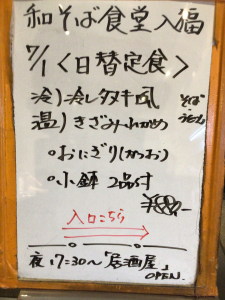 和そば食堂入福
7/1〈日替定食〉
冷)冷しタヌキ
そば・うどん
温)きざみわかめ
。おにぎり(かつお)
。小鉢 2品付
入口こちら
夜17:30〜「居酒屋」
OPEN.